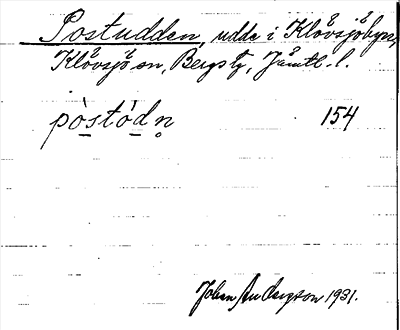 Postudden, udde i Klövsjöbyn,
Klövsjö sn, Bergs tg, Jämtl. l.
pòstód n̥ 154
Johan Anderzon 1931.